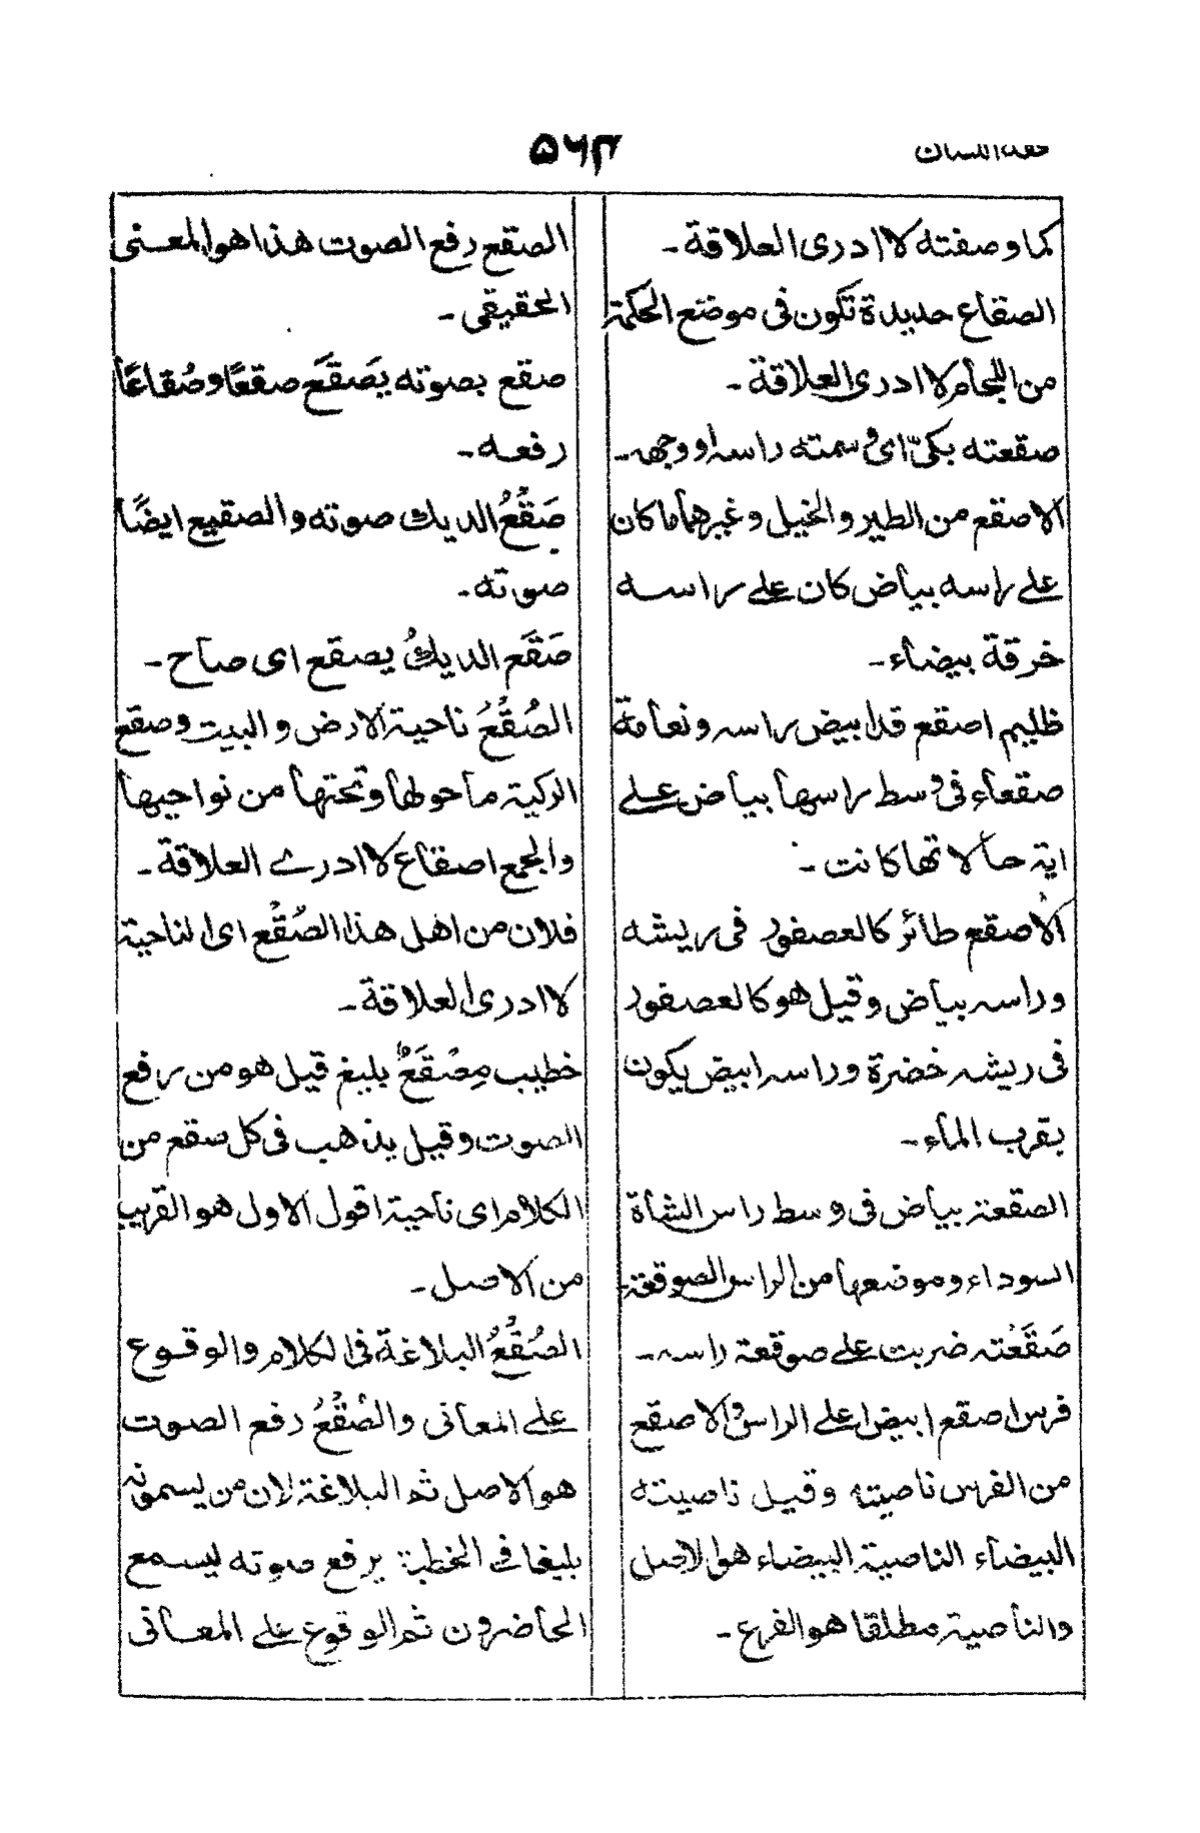 فقه اللسان
۵۶۳
كما وصفته لا ادرى العلاقة۔
الصقاع حديدة تكون فى موضع الحكمة
من اللجام لا ادرى العلاقة۔
صقعته بكىّ اى وسمته راسه او وجهه۔
الاصقع من الطير والخيل وغيرهما ما كان
على راسه بياض كان على راسه
خرقة بيضاء۔
ظليم اصقع قد ابيض راسه ونعامة
صقعاء فى وسط راسها بياض على
اية حالاتها كانت۔
الاصقع طائر كالعصفور فى ريشه
وراسه بياض وقيل هو كالعصفور
فى ريشه خضرة وراسه ابيض يكون
بقرب الماء۔
الصقعة بياض فى وسط راس الشاة
السوداء وموضعها من الراس الصوقعة۔
صَقَعْته ضربت على صوقعة راسه۔
فرس اصقع ابيض اعلى الراس والاصقع
من الفرس ناصيته وقيل ناصيته
البيضاء الناصية البيضاء هو الاصل
والناصية مطلقا هو الفرع۔
الصقع رفع الصوت هذا هو المعنى
الحقيقى۔
صقع بصوته يَصقَع صقعًا وصُقاعًا
رفعه۔
صَقْعُ الديك صوته والصقيع ايضًا
صوته۔
صَقَع الديكُ يصقع اى صاح۔
الصُقْعُ ناحية الارض والبيت وصقع
الركية ما حولها وتحتها من نواحيها
والجمع اصقاع لا ادرے العلاقة۔
فلان من اهل هذا الصُقْع اى الناحية
لا ادرى العلاقة۔
خطيب مِصْقَعٌ بليغ قيل هو من رفع
الصوت وقيل يذهب فى كل صقع من
الكلام اى ناحية اقول الاول هو القريب
من الاصل۔
الصُقْعُ البلاغة فى الكلام والوقوع
على المعانى والصُقْعُ رفع الصوت
هو الاصل ثم البلاغة لان من يسمونه
بليغا فى الخطبة يرفع صوته ليسمع
الحاضرون ثم الوقوع على المعانى